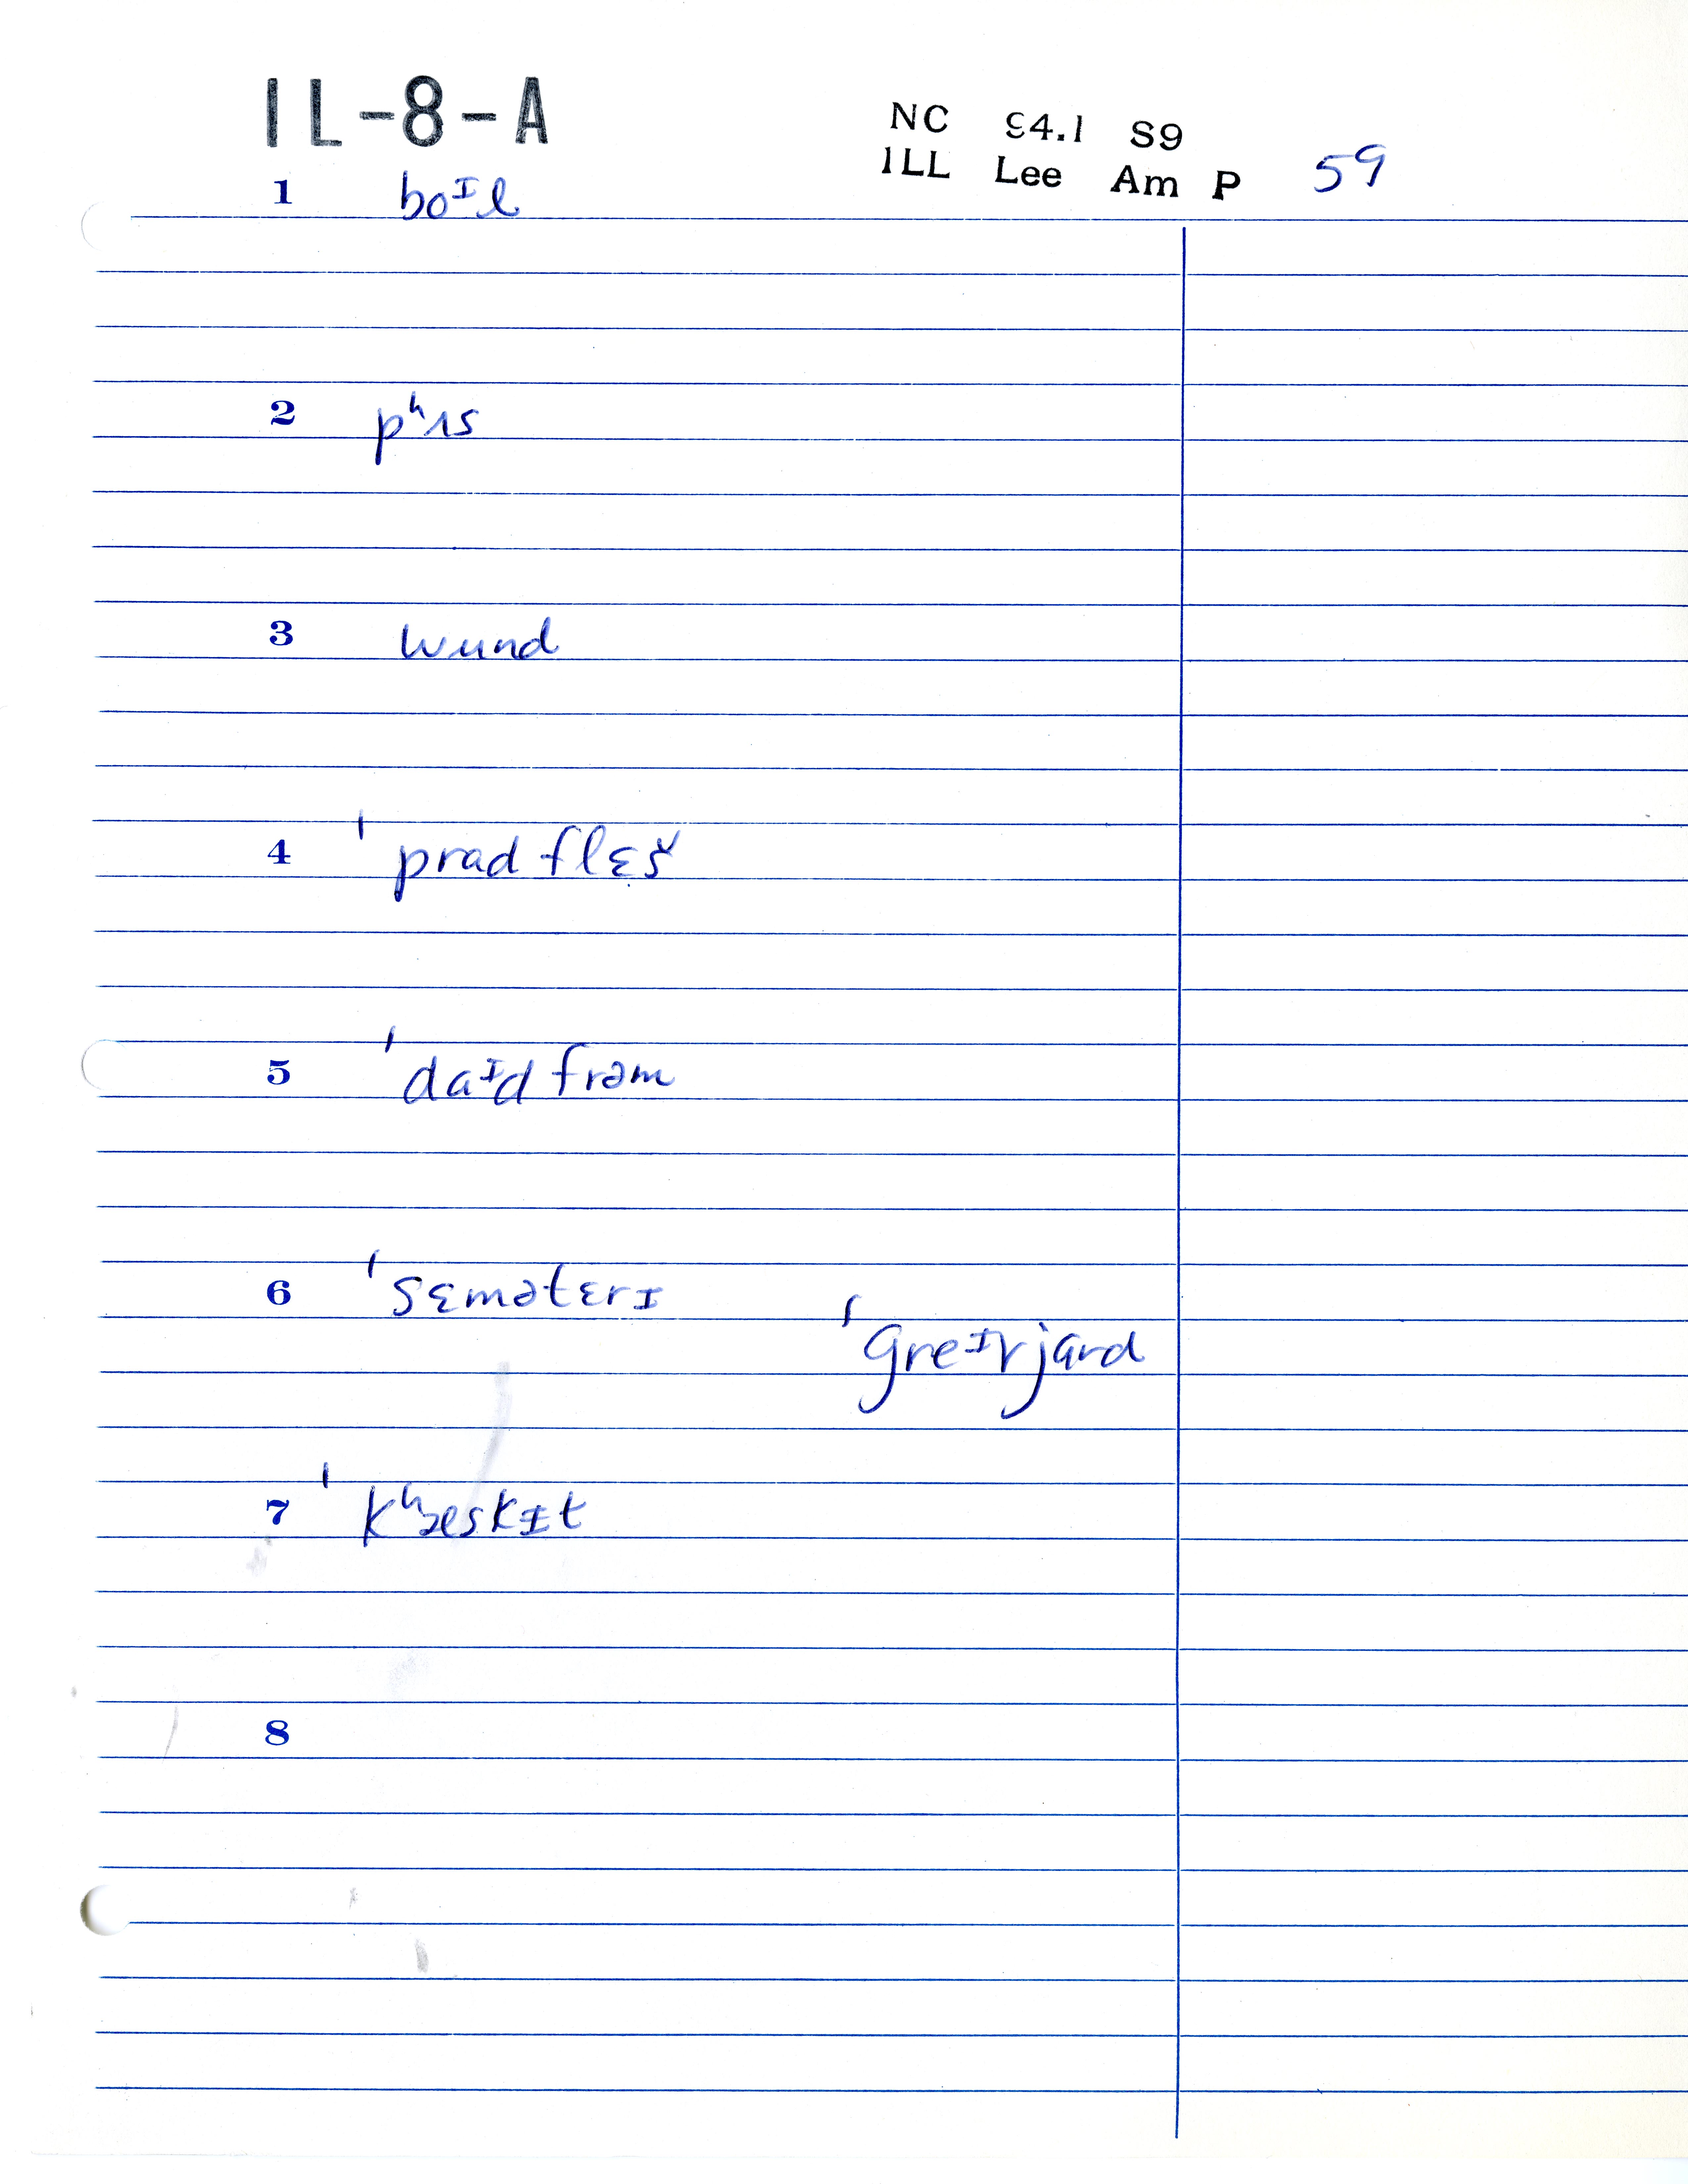 IL-8-A
NC 94.1 S9
ILL Lee Am P 59
1 boᴵl
2 pʰʌs
3 wund
4 ˈprad flɛš
5 ˈdaᴵd frəm
6 ˈsɛmətɛrɪ
ˈgreᴵvjard
7 ˈkʰæskɪt
8